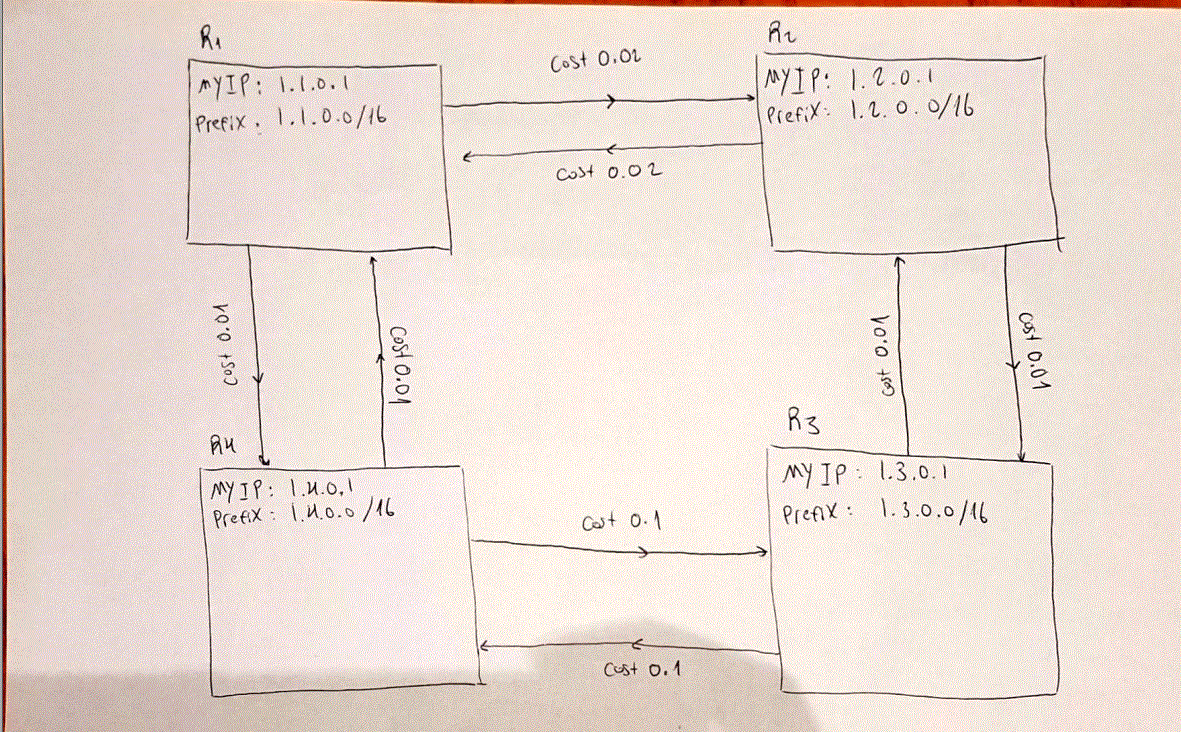 R1
MYIP: 1.1.0.1
Prefix. 1.1.0.0/16
Cost 0.02
Cost 0.02
R2
MYIP: 1.2.0.1
Prefix: 1.2.0.0/16
Cost 0.01
Cost 0.01
Cost 0.01
Cost 0.01
R4
MYIP: 1.4.0.1
Prefix: 1.4.0.0/16
Cost 0.1
Cost 0.1
R3
MYIP: 1.3.0.1
Prefix: 1.3.0.0/16